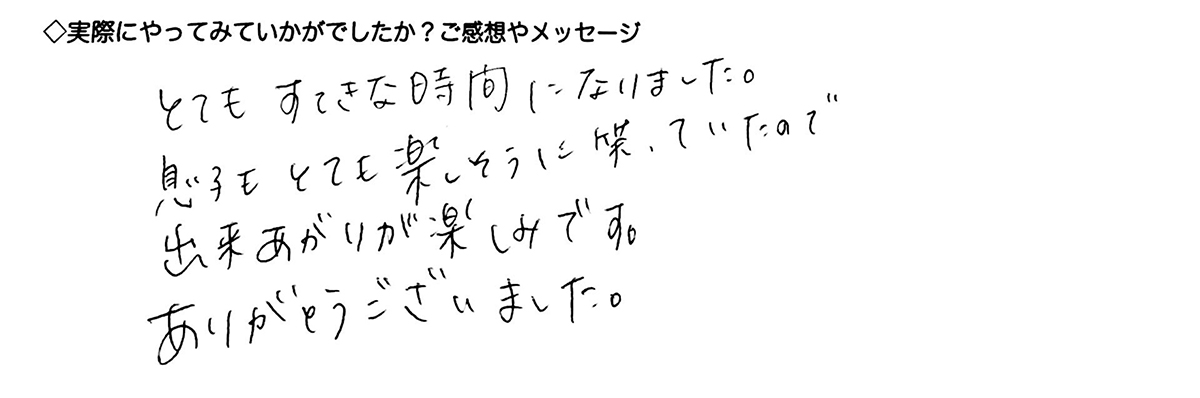 ◇実際にやってみていかがでしたか？ご感想やメッセージ
とても すてきな時間になりました。
息子もとても楽しそうに笑っていたので
出来あがりが楽しみです。
ありがとうございました。